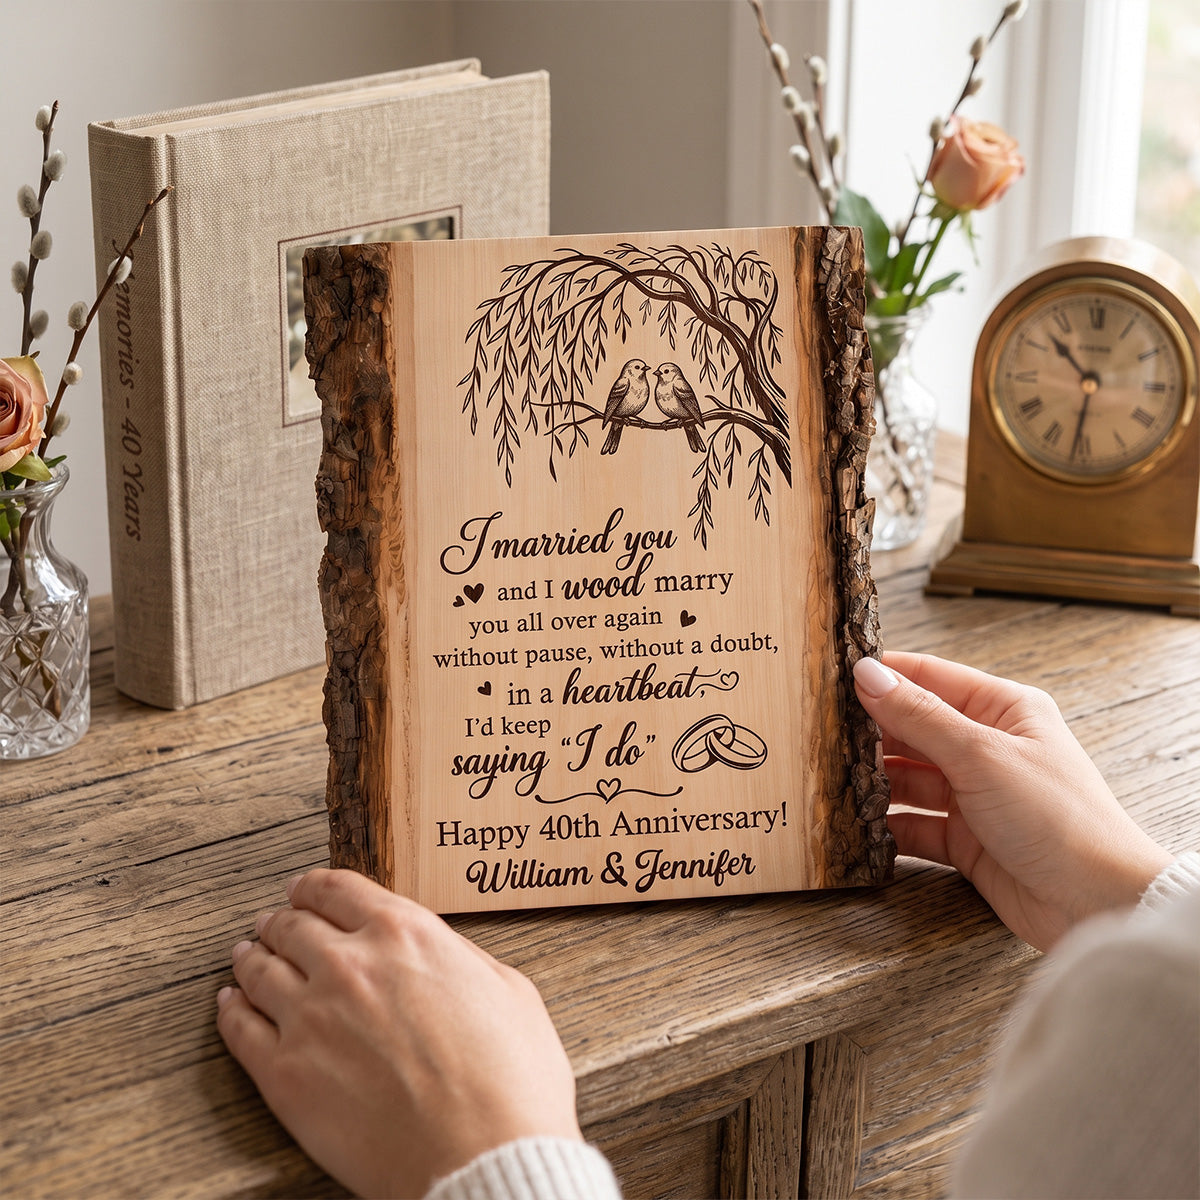 Memories – 40 Years
I married you
and I wood marry
you all over again
without pause, without a doubt,
in a heartbeat,
I'd keep
saying “I do”
Happy 40th Anniversary!
William & Jennifer